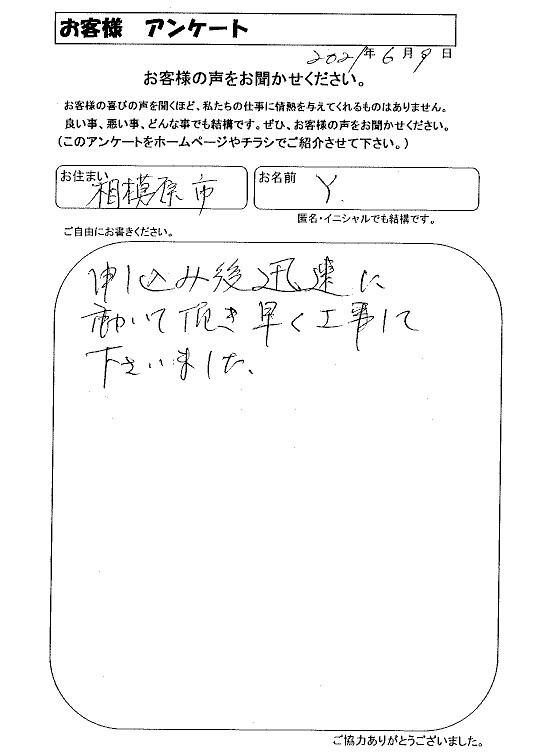 お客様 アンケート
2021年6月9日
お客様の声をお聞かせください。
お客様の喜びの声を聞くほど、私たちの仕事に情熱を与えてくれるものはありません。
良い事、悪い事、どんな事でも結構です。ぜひ、お客様の声をお聞かせください。
(このアンケートをホームページやチラシでご紹介させて下さい。)
お住まい 相模原市
お名前 Y.
匿名・イニシャルでも結構です。
ご自由にお書きください。
申し込み後迅速に
動いて頂き早く工事して
下さいました。
ご協力ありがとうございました。